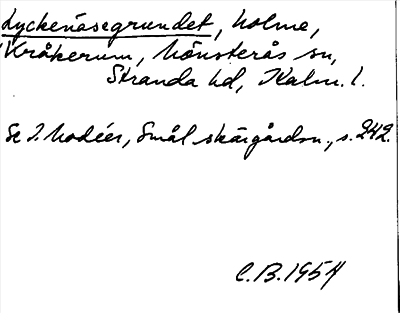 Lyckenäsegrundet, holme,
Kråkerum, Mönsterås sn,
Stranda hd, Kalm. l.
Se I. Modéer, Smål skärgårdsn., s. 242.
C.B. 1954